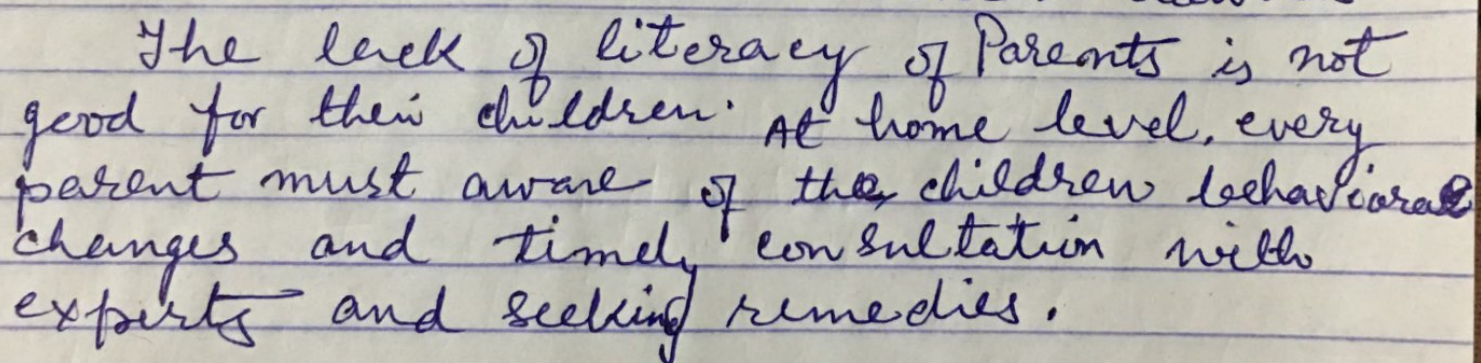 The lack of literacy of Parents is not
good for their children. At home level, every
parent must aware of the children behavioral
changes and timely consultation with
experts and seeking remedies.